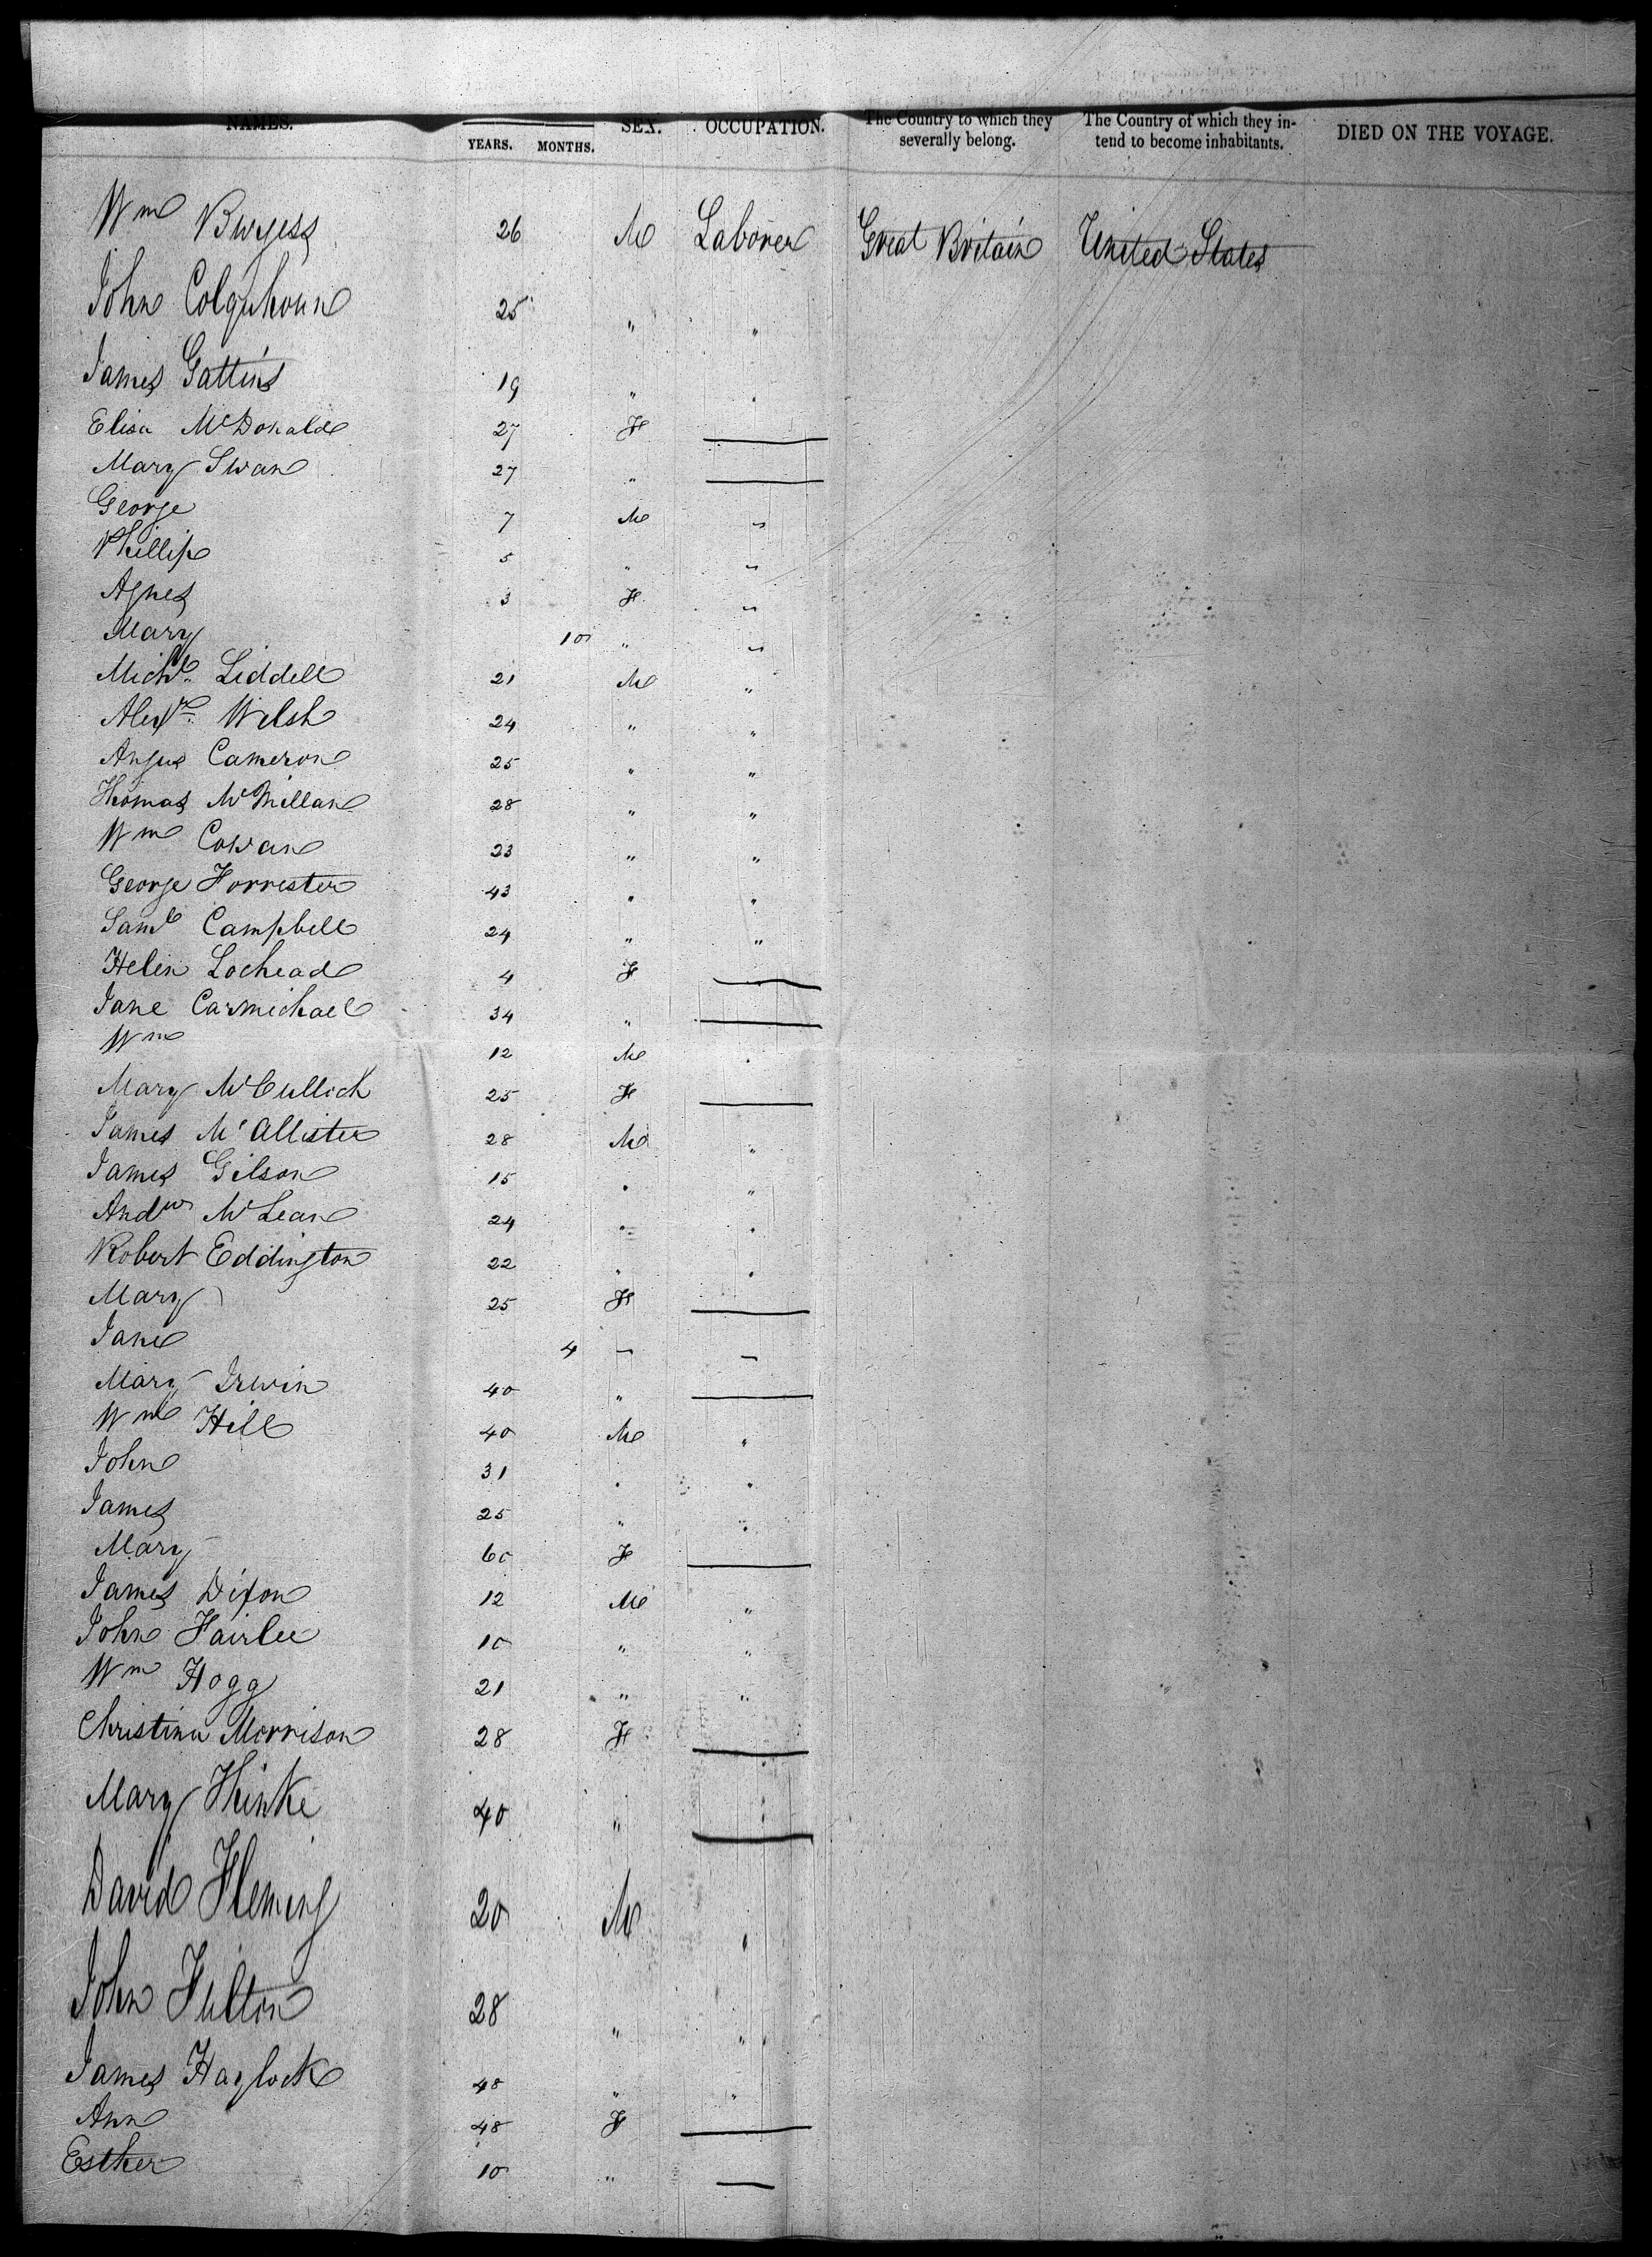 NAMES. YEARS. MONTHS. SEX. OCCUPATION. The Country to which they severally belong. The Country of which they intend to become inhabitants. DIED ON THE VOYAGE.
Wm Burgess 26 M Laborer Great Britain United States
John Colquhoun 25 " "
James Gattins 19 " "
Elisa McDonald 27 F —
Mary Swan 27 " —
George 7 M "
Phillip 5 " "
Agnes 3 F "
Mary 10 " "
Michl. Liddell 21 M "
Alexr. Welsh 24 " "
Angus Cameron 25 " "
Thomas McMillan 28 " "
Wm Cowan 23 " "
George Forrester 43 " "
Saml Campbell 24 " "
Helen Lochead 4 F —
Jane Carmichael 34 " —
Wm 12 M "
Mary McCullich 25 F —
James McAllister 28 M "
James Gilson 15 " "
Andw McLean 24 " "
Robert Eddington 22 " "
Mary 25 F —
Jane 4 – –
Mary Irwin 40 " —
Wm Hill 40 M "
John 31 " "
James 25 " "
Mary 60 F —
James Dixon 12 M "
John Fairlee 10 " "
Wm Hogg 21 " "
Christina Morrison 28 F —
Mary 40 " —
David Fleming 20 M "
John Fulton 28 " "
James Haylock 48 " "
Ann 48 F —
Esther 10 " —